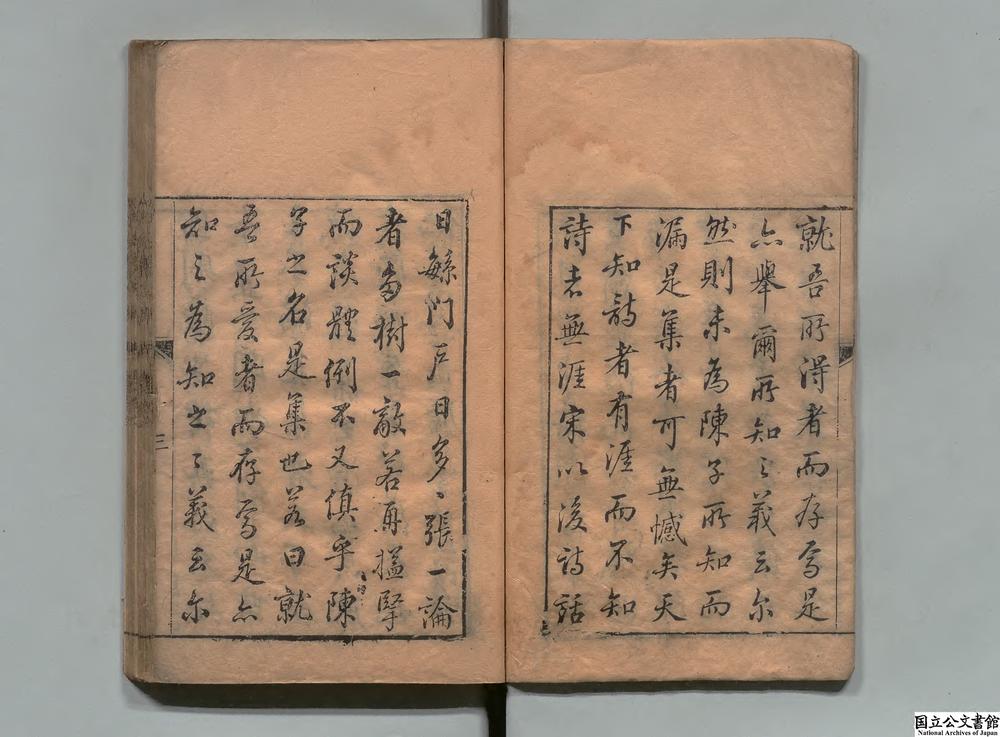 就吾所得者而存焉是
亦舉爾所知之義云尔
然則未為陳子所知而
漏是集者可無憾矣天
下知詩者有涯而不知
詩者無涯宋以後詩話
日繇門戶日多〻張一論
者多樹一敵若再搤掔
而談體例不又傎乎陳
子之名是集也若曰就
吾所愛者而存焉是亦
知之為知之之義云尔
三
国立公文書館
National Archives of Japan